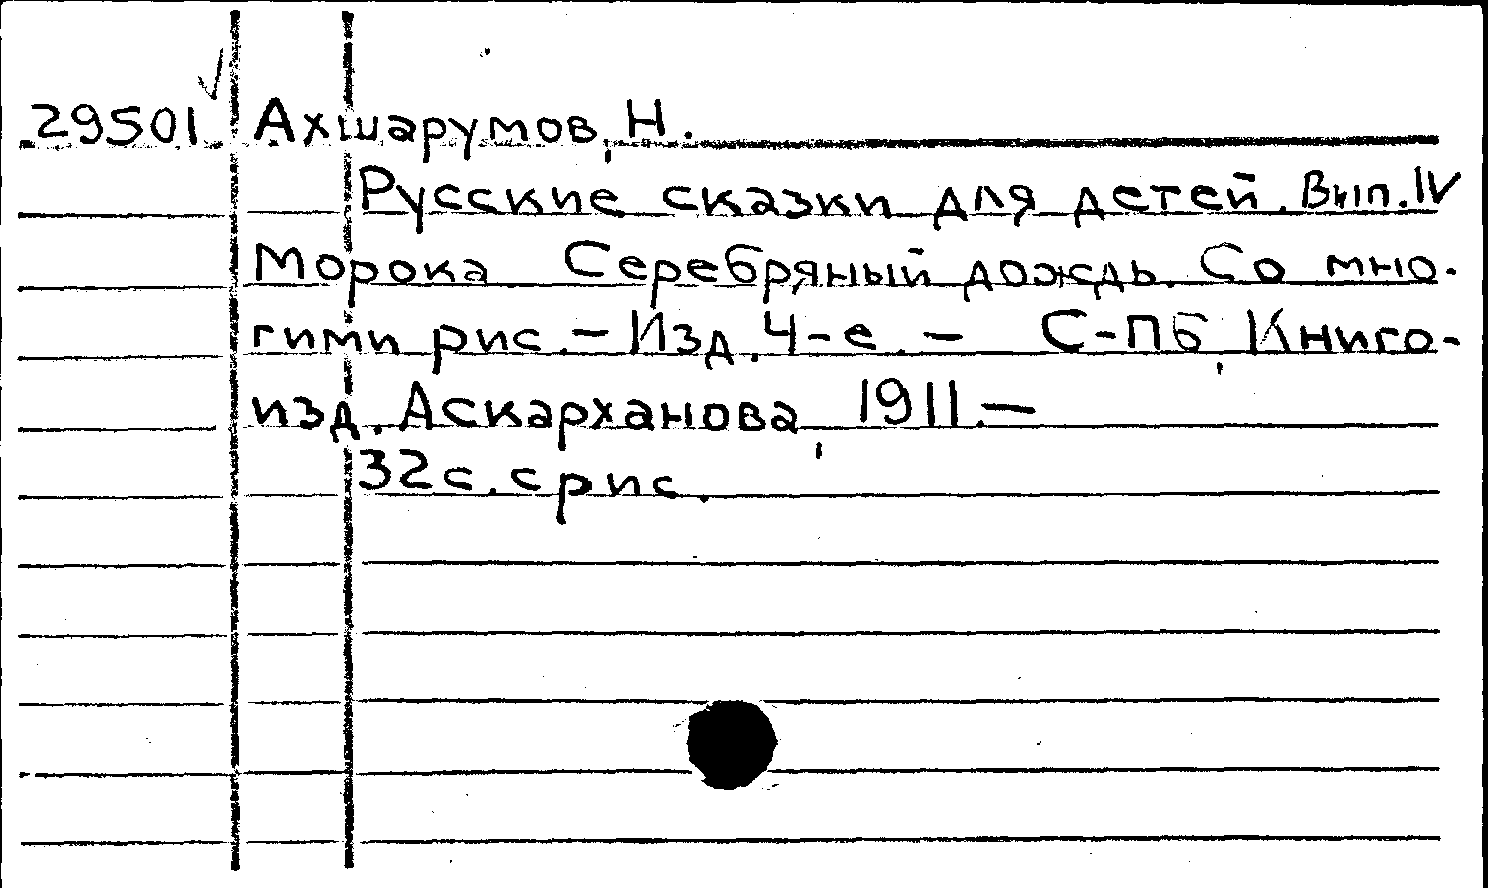 29501 Ахшарумов, Н.
Русские сказки для детей. Вып. IV
Морока Серебряный дождь. Со мно-
гими рис. – Изд. 4-е. – С-Пб, Книго-
изд. Аскарханова, 1911. –
32 с. с рис.